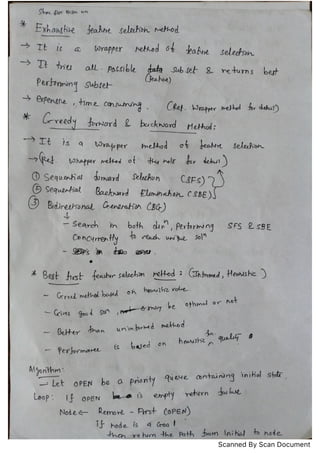 * Exhaustive feature selection Method
→ It is a wrapper method of feature selection
→ It tries all possible data subset & returns best
(feature)
Performing Subset
→ Expensive, time consuming. (Ref. Wrapper method for detail)
* Greedy forward & backward Method:
→ It is a wrapper method of feature selection.
→ (Ref. wrapper method of this note for detail)
① Sequential forward Selection (SFS)
② Sequential Backward Elimination (SBE)
③ Bidirectional Generation (BG)
↓
- Search in both dirⁿ, Performing SFS & SBE
Concurrently to reach unique solⁿ
* Best first feature selection method: (Informed, Heuristic)
- Greed method based on heuristic value
- Gives good solⁿ, may be optimal or not
- Better than uninformed method
- Performance is based on heuristic fn quality
Algorithm:
- Let OPEN be a priority queue containing initial state
Loop: If OPEN is empty return failure
Node ← Remove - First (OPEN)
If node is a Goal
then return the Path from initial to node
Scanned By Scan Document